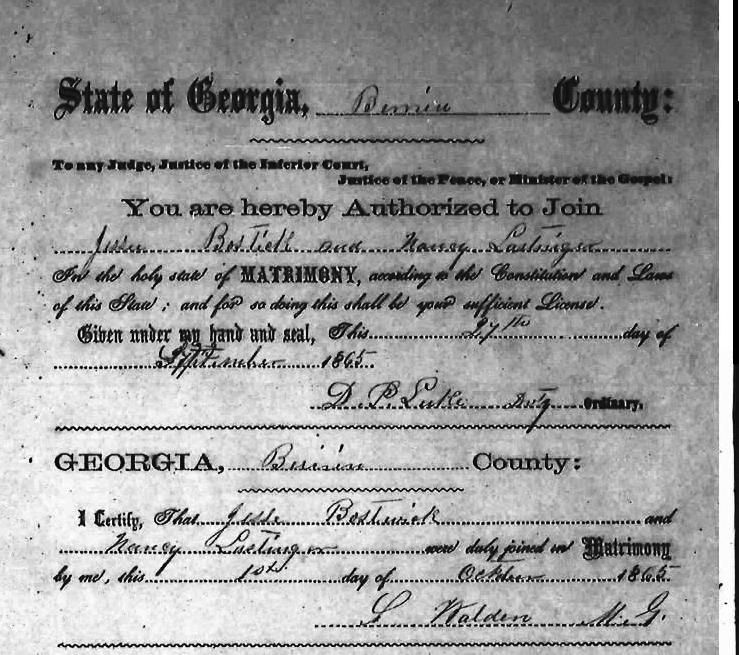 State of Georgia, Berrien County:
To any Judge, Justice of the Inferior Court,
Justice of the Peace, or Minister of the Gospel:
You are hereby Authorized to Join
Jesse Bostick and Nancy Lastinger
In the holy state of MATRIMONY, according to the Constitution and Laws
of this State; and for so doing this shall be your sufficient License.
Given under my hand and seal, This 27th day of
September 1865
D. P. Luke Ordinary.
GEORGIA, Berrien County:
I Certify, That Jesse Bostwick and
Nancy Lastinger were duly joined in Matrimony
by me, this 1st day of October 1865
L Walden M. G.